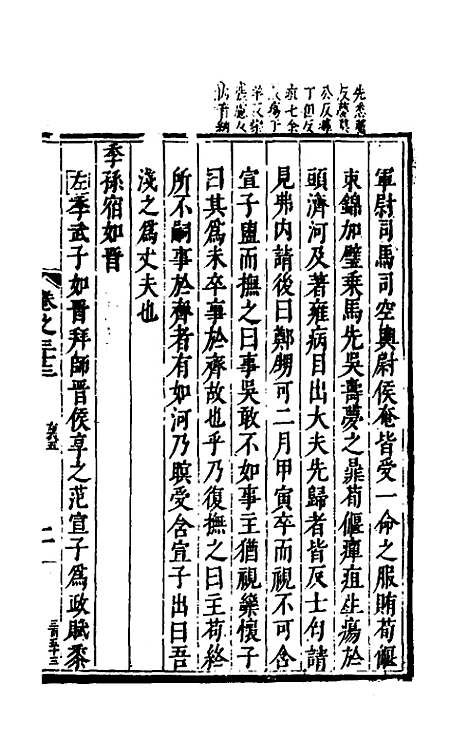 軍尉司馬司空輿尉候奄皆受一命之服賄荀偃
束錦加璧乘馬先吳壽夢之鼎荀偃癉疽生瘍於
頭濟河及著雍病目出大夫先歸者皆反士匄請
見弗內請後曰鄭甥可二月甲寅卒而視不可含
宣子盥而撫之曰事吳敢不如事主猶視欒懷子
曰其為未卒事於齊故也乎乃復撫之曰主荀終
所不嗣事於齊者有如河乃瞑受含宣子出曰吾
淺之為丈夫也
季孫宿如晉
左季武子如晉拜師晉侯享之范宣子為政賦黍
卷之三十三
二一
三百五十三